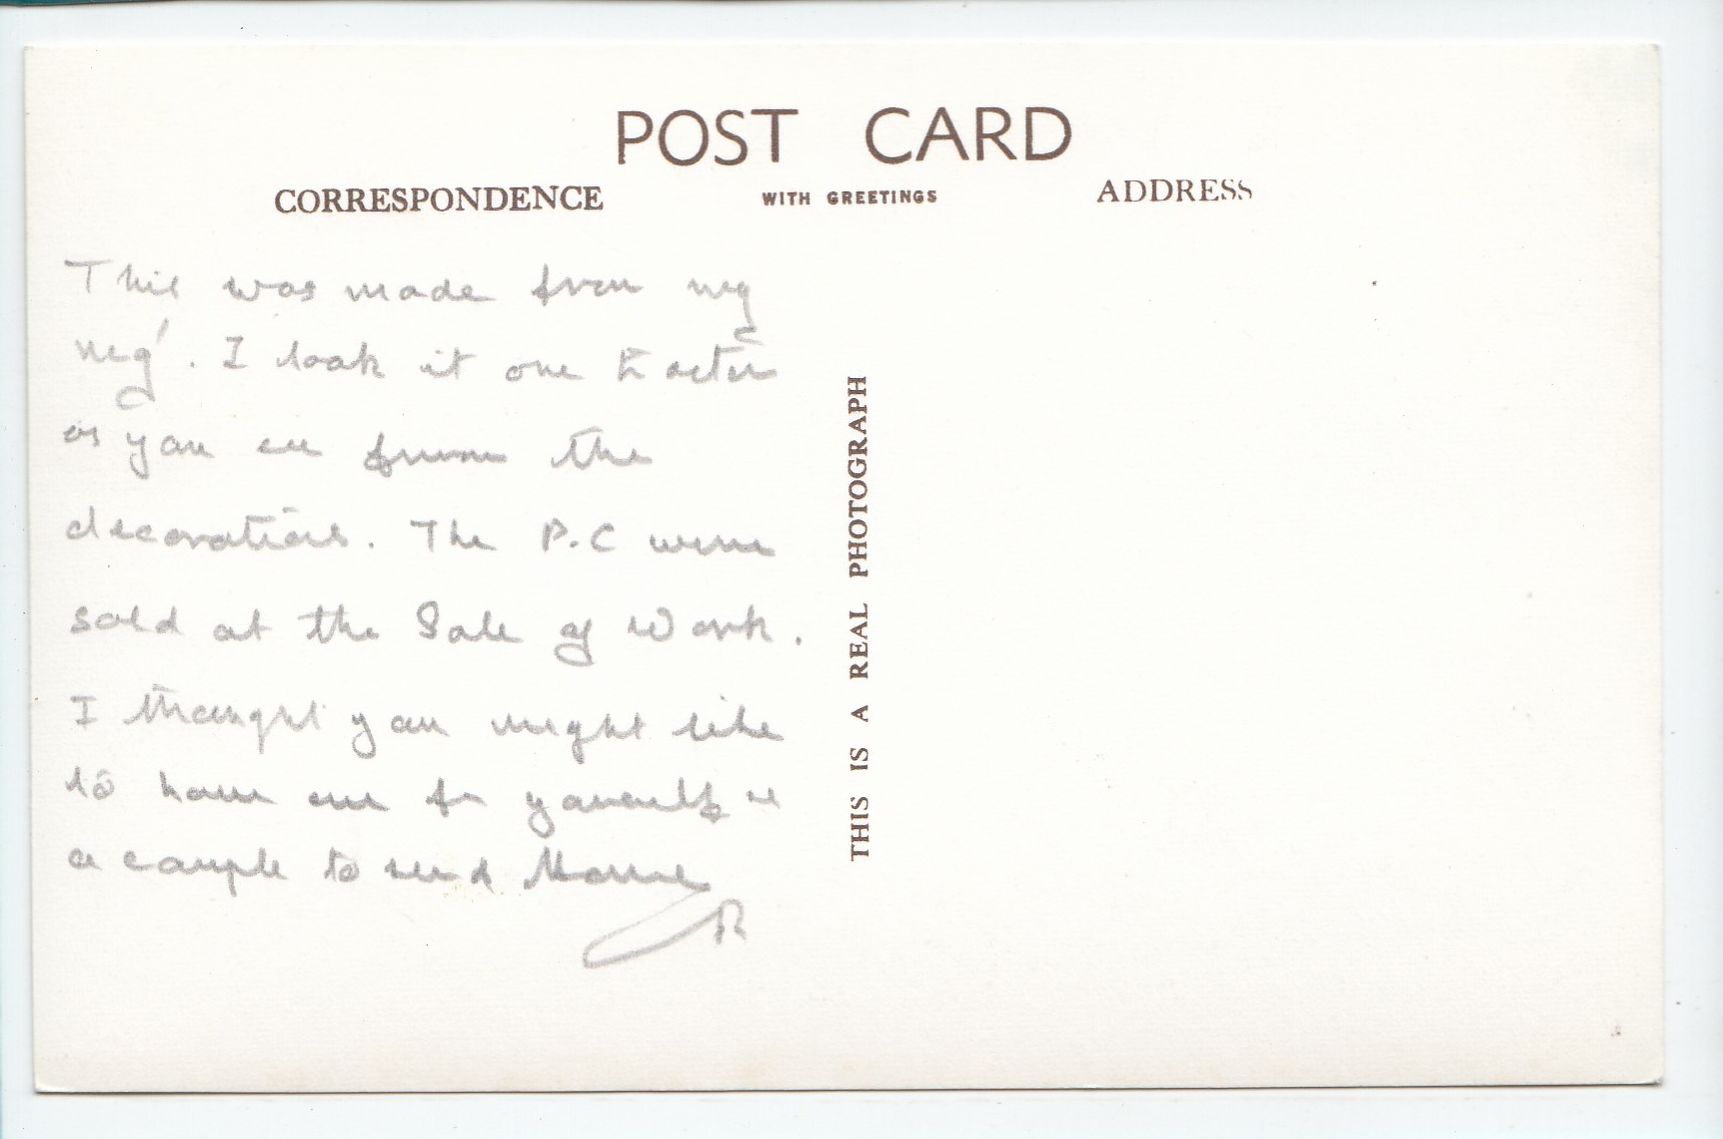 POST CARD
CORRESPONDENCE
WITH GREETINGS
ADDRESS
This was made from my
neg'. I took it one Easter
as you see from the
decorations. The P.C were
sold at the Sale of Work.
I thought you might like
to have one for yourself or
a couple to send Home
R
THIS IS A REAL PHOTOGRAPH